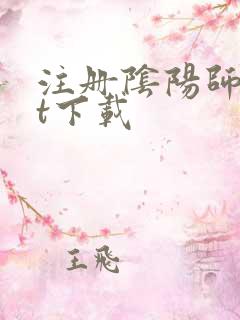 注册陰陽師
t下載
王飛